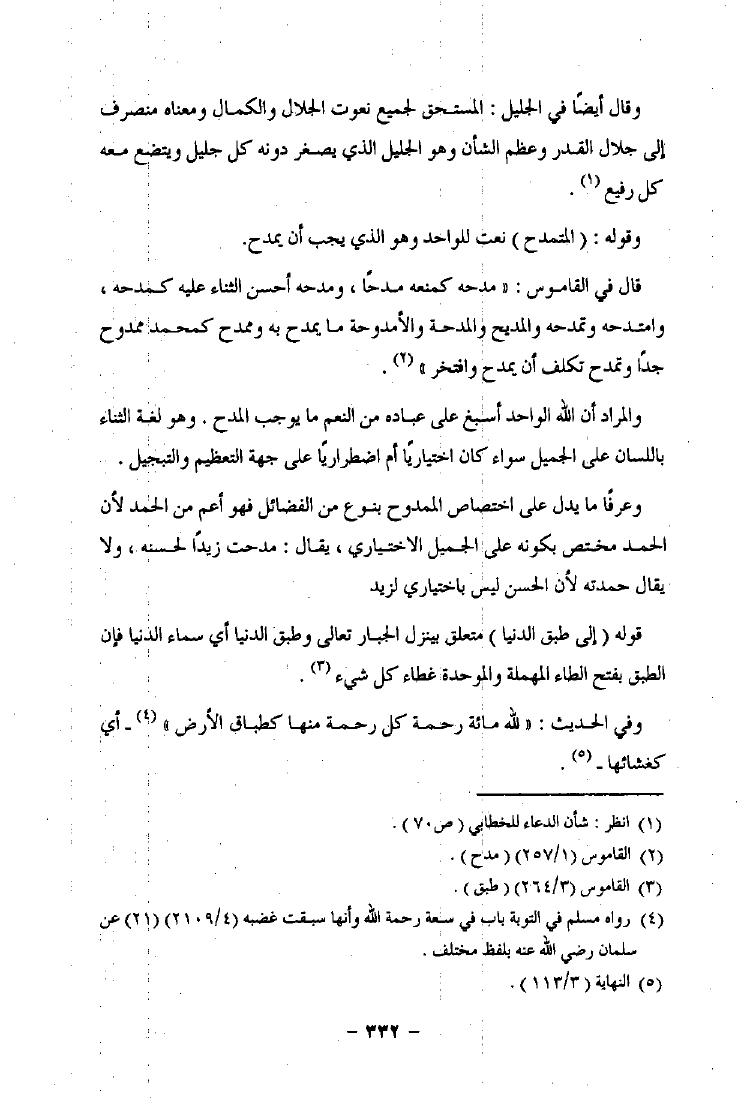 وقال أيضًا في الجليل : المستحق لجميع نعوت الجلال والكمال ومعناه منصرف
إلى جلال القدر وعظم الشأن وهو الجليل الذي يصغر دونه كل جليل ويتضع معه
كل رفيع (١) .
وقوله : ( المتمدح ) نعت للواحد وهو الذي يجب أن يمدح.
قال في القاموس : « مدحه كمنعه مدحًا ، ومدحه أحسن الثناء عليه كمدحه ،
وامتدحه وتمدحه والمديح والمدحة والأمدوحة ما يمدح به وممدح كمحمد ممدوح
جدًا وتمدح تكلف أن يمدح وافتخر » (٢) .
والمراد أن الله الواحد أسبغ على عباده من النعم ما يوجب المدح . وهو لغة الثناء
باللسان على الجميل سواء كان اختياريًا أم اضطراريًا على جهة التعظيم والتبجيل .
وعرفًا ما يدل على اختصاص الممدوح بنوع من الفضائل فهو أعم من الحمد لأن
الحمد مختص بكونه على الجميل الاختياري ، يقال : مدحت زيدًا لحسنه ، ولا
يقال حمدته لأن الحسن ليس باختياري لزيد
قوله ( إلى طبق الدنيا ) متعلق بينزل الجبار تعالى وطبق الدنيا أي سماء الدنيا فإن
الطبق بفتح الطاء المهملة والموحدة غطاء كل شيء (٣) .
وفي الحديث : « لله مائة رحمة كل رحمة منها كطباق الأرض » (٤) ـ أي
كغشائها ـ (٥) .
(١) انظر : شأن الدعاء للخطابي ( ص٧٠ ) .
(٢) القاموس (٢٥٧/١) ( مدح ) .
(٣) القاموس (٢٦٤/٣) ( طبق ) .
(٤) رواه مسلم في التوبة باب في سعة رحمة الله وأنها سبقت غضبه (٢١٠٩/٤) (٢١) عن
سلمان رضي الله عنه بلفظ مختلف .
(٥) النهاية ( ١١٣/٣ ) .
– ٣٣٢ –